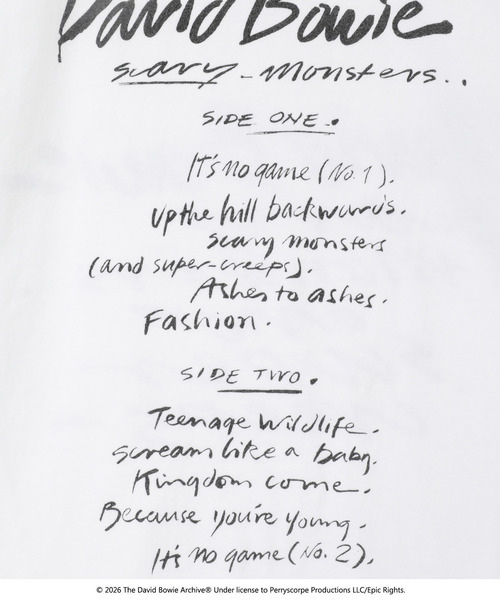 David Bowie
scary - monsters..
SIDE ONE.
It's no game (No. 1).
up the hill backwards.
scary monsters
(and super-creeps).
Ashes to ashes.
Fashion.
SIDE TWO.
Teenage wildlife.
scream like a baby.
Kingdom come.
Because you're young.
It's no game (No. 2).
© 2026 The David Bowie Archive® Under license to Perryscorpe Productions LLC/Epic Rights.